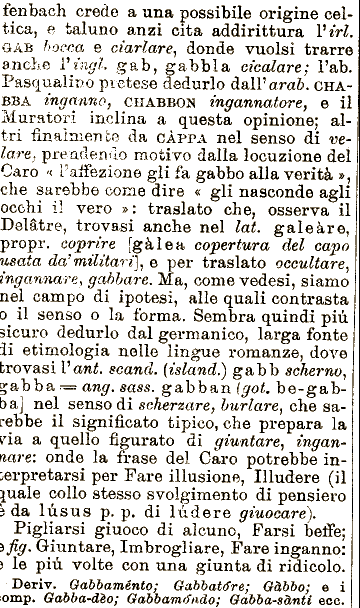 fenbach crede a una possibile origine cel-
tica, e taluno anzi cita addirittura l'irl.
GAB bocca e ciarlare, donde vuolsi trarre
anche l'ingl. gab, gabbla cicalare; l'ab.
Pasqualino pretese dedurlo dall'arab. CHA-
BBA inganno, CHABBON ingannatore, e il
Muratori inclina a questa opinione; al-
tri finalmente da CÀPPA nel senso di ve-
lare, prendendo motivo dalla locuzione del
Caro « l'affezione gli fa gabbo alla verità »,
che sarebbe come dire « gli nasconde agli
occhi il vero »: traslato che, osserva il
Delâtre, trovasi anche nel lat. galeàre,
propr. coprire [gàlea copertura del capo
usata da' militari], e per traslato occultare,
ingannare, gabbare. Ma, come vedesi, siamo
nel campo di ipotesi, alle quali contrasta
o il senso o la forma. Sembra quindi più
sicuro dedurlo dal germanico, larga fonte
di etimologia nelle lingue romanze, dove
trovasi l'ant. scand. (island.) gabb scherno,
gabba = ang. sass. gabban (got. be-gab-
ba] nel senso di scherzare, burlare, che sa-
rebbe il significato tipico, che prepara la
via a quello figurato di giuntare, ingan-
nare: onde la frase del Caro potrebbe in-
terpretarsi per Fare illusione, Illudere (il
quale collo stesso svolgimento di pensiero
è da lúsus p. p. di lúdere giuocare).
Pigliarsi giuoco di alcuno, Farsi beffe;
e fig. Giuntare, Imbrogliare, Fare inganno:
e le più volte con una giunta di ridicolo.
Deriv. Gabbaménto; Gabbatóre; Gàbbo; e i
comp. Gabba-dèo; Gabbamóndo; Gabba-sànti ecc.